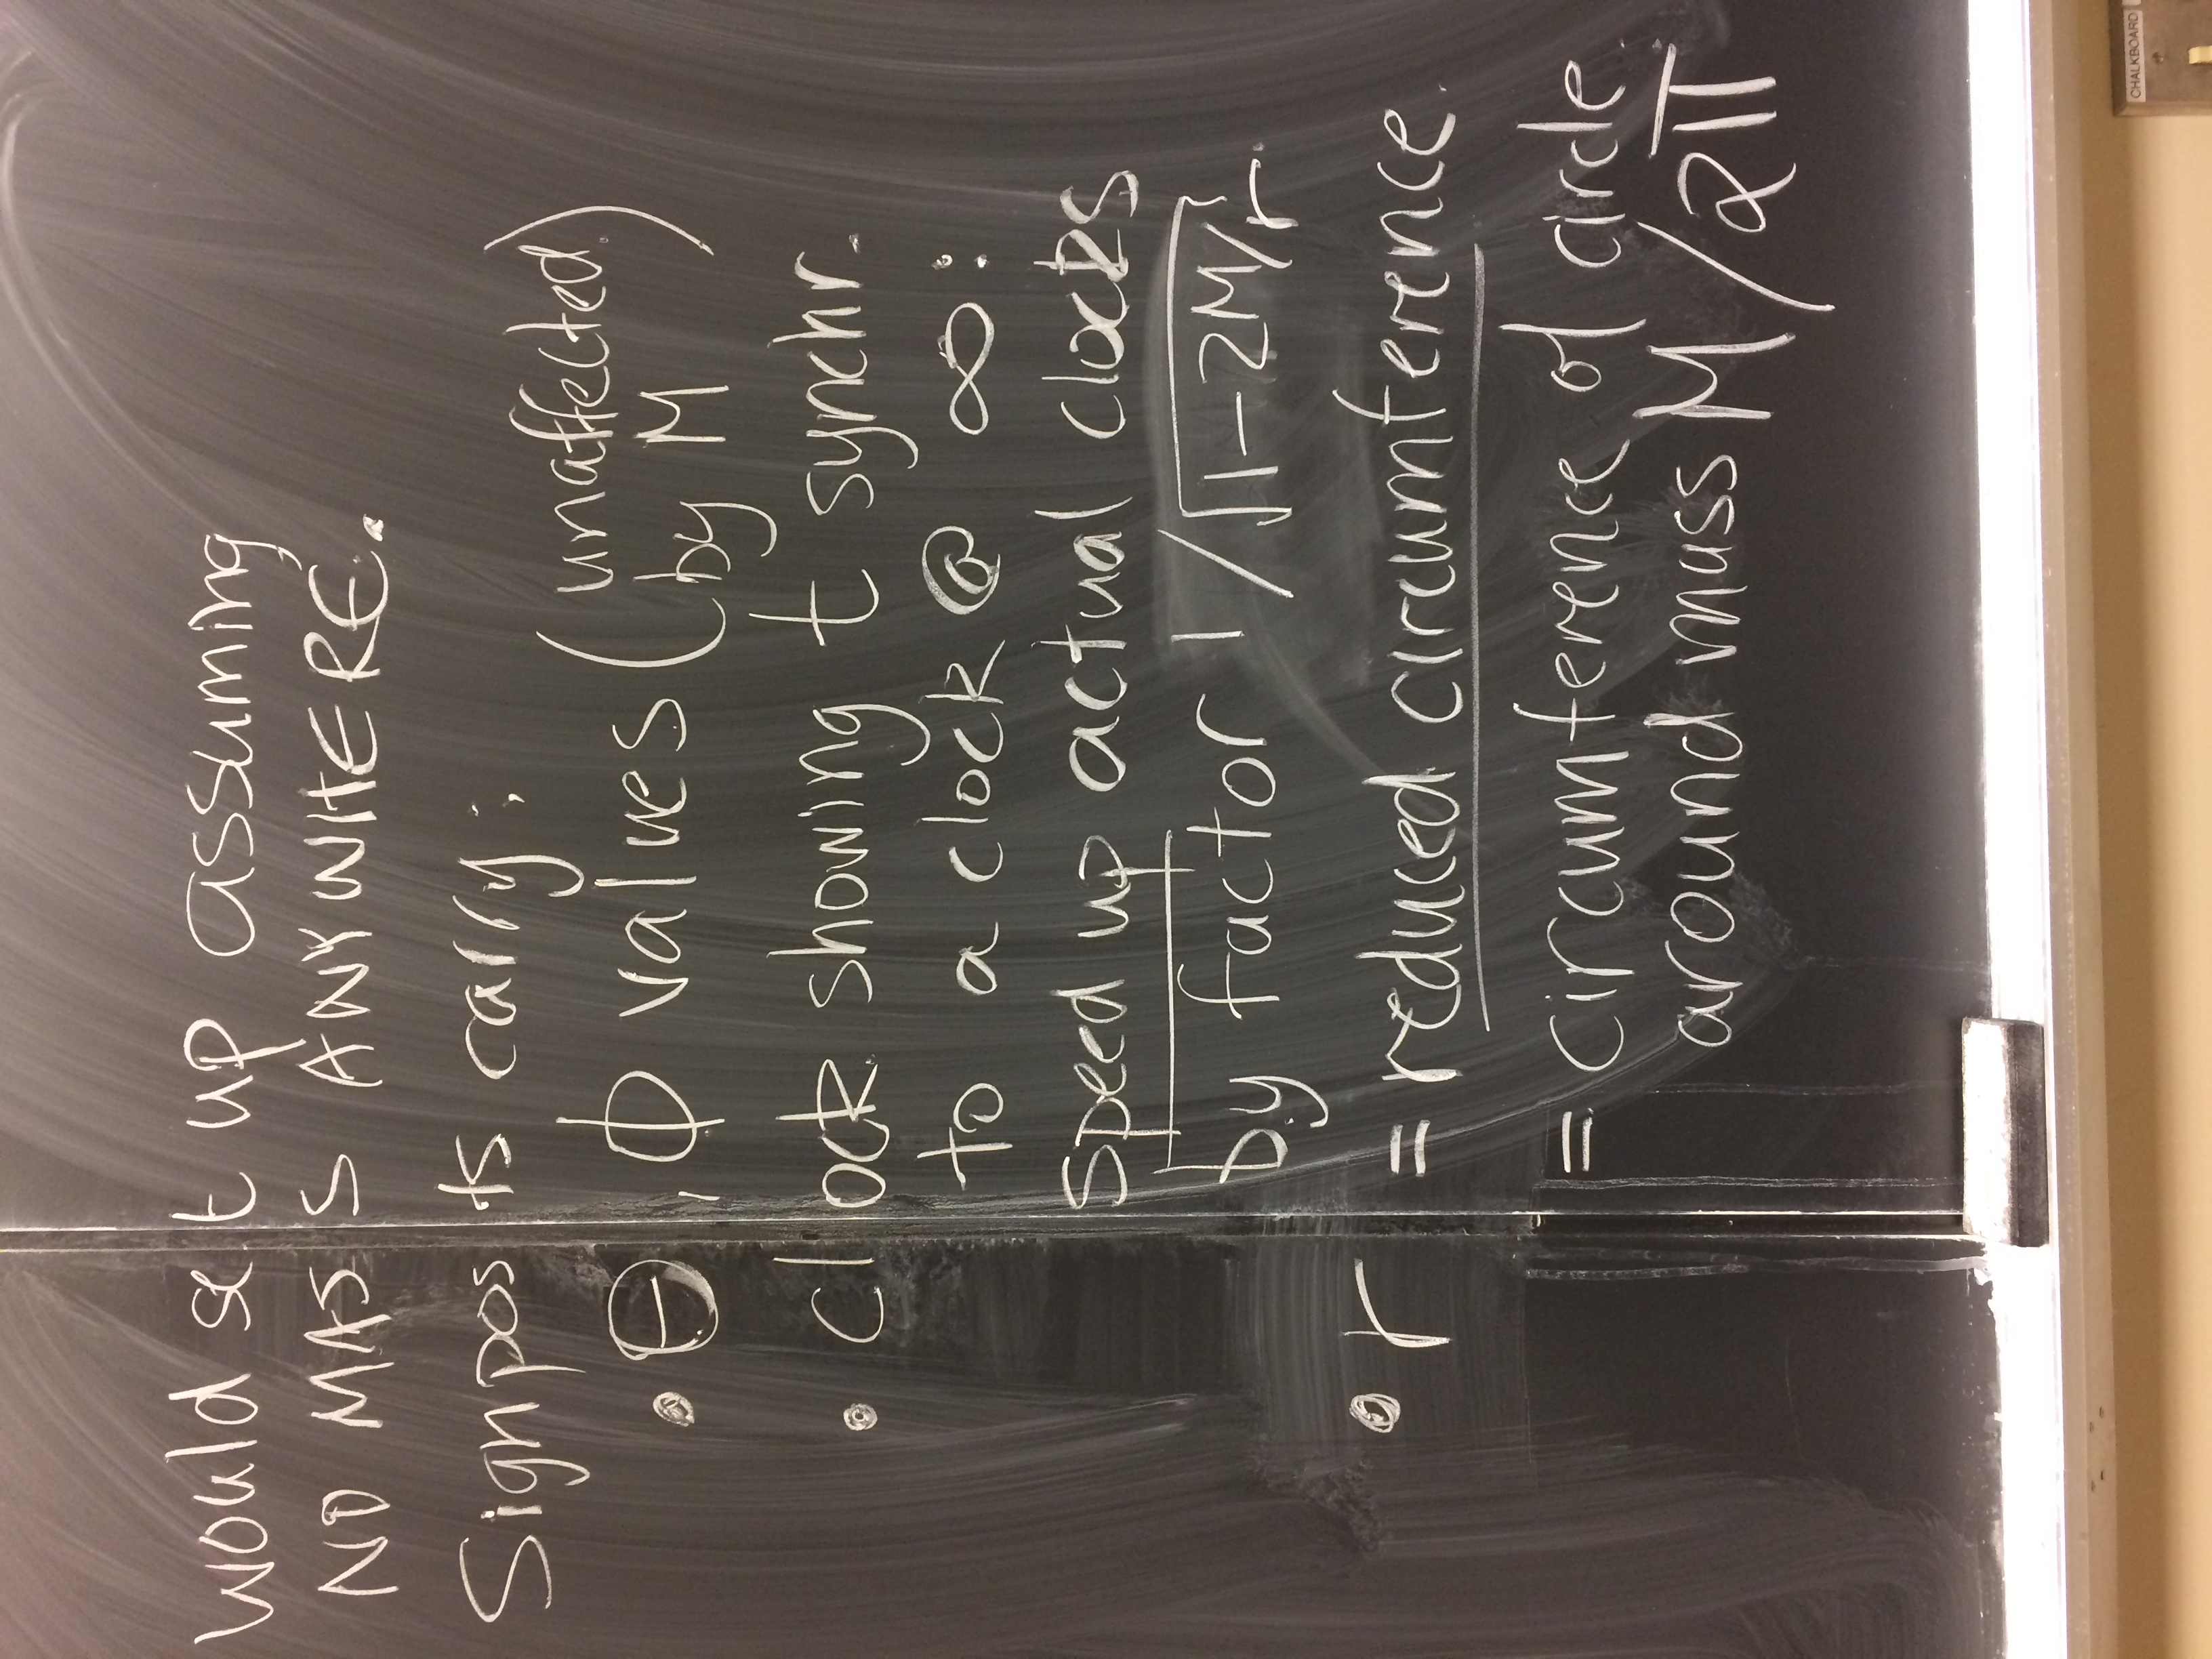 would set up assuming
NO MASS ANYWHERE.
Signposts carry:
• θ, ϕ values (unaffected by M)
• clock showing t synchr.
to a clock @ ∞:
speed up actual clocks
by factor 1/√1-2M/r.
• r = reduced circumference.
= circumference of circle
around mass M/2π
CHALKBOARD